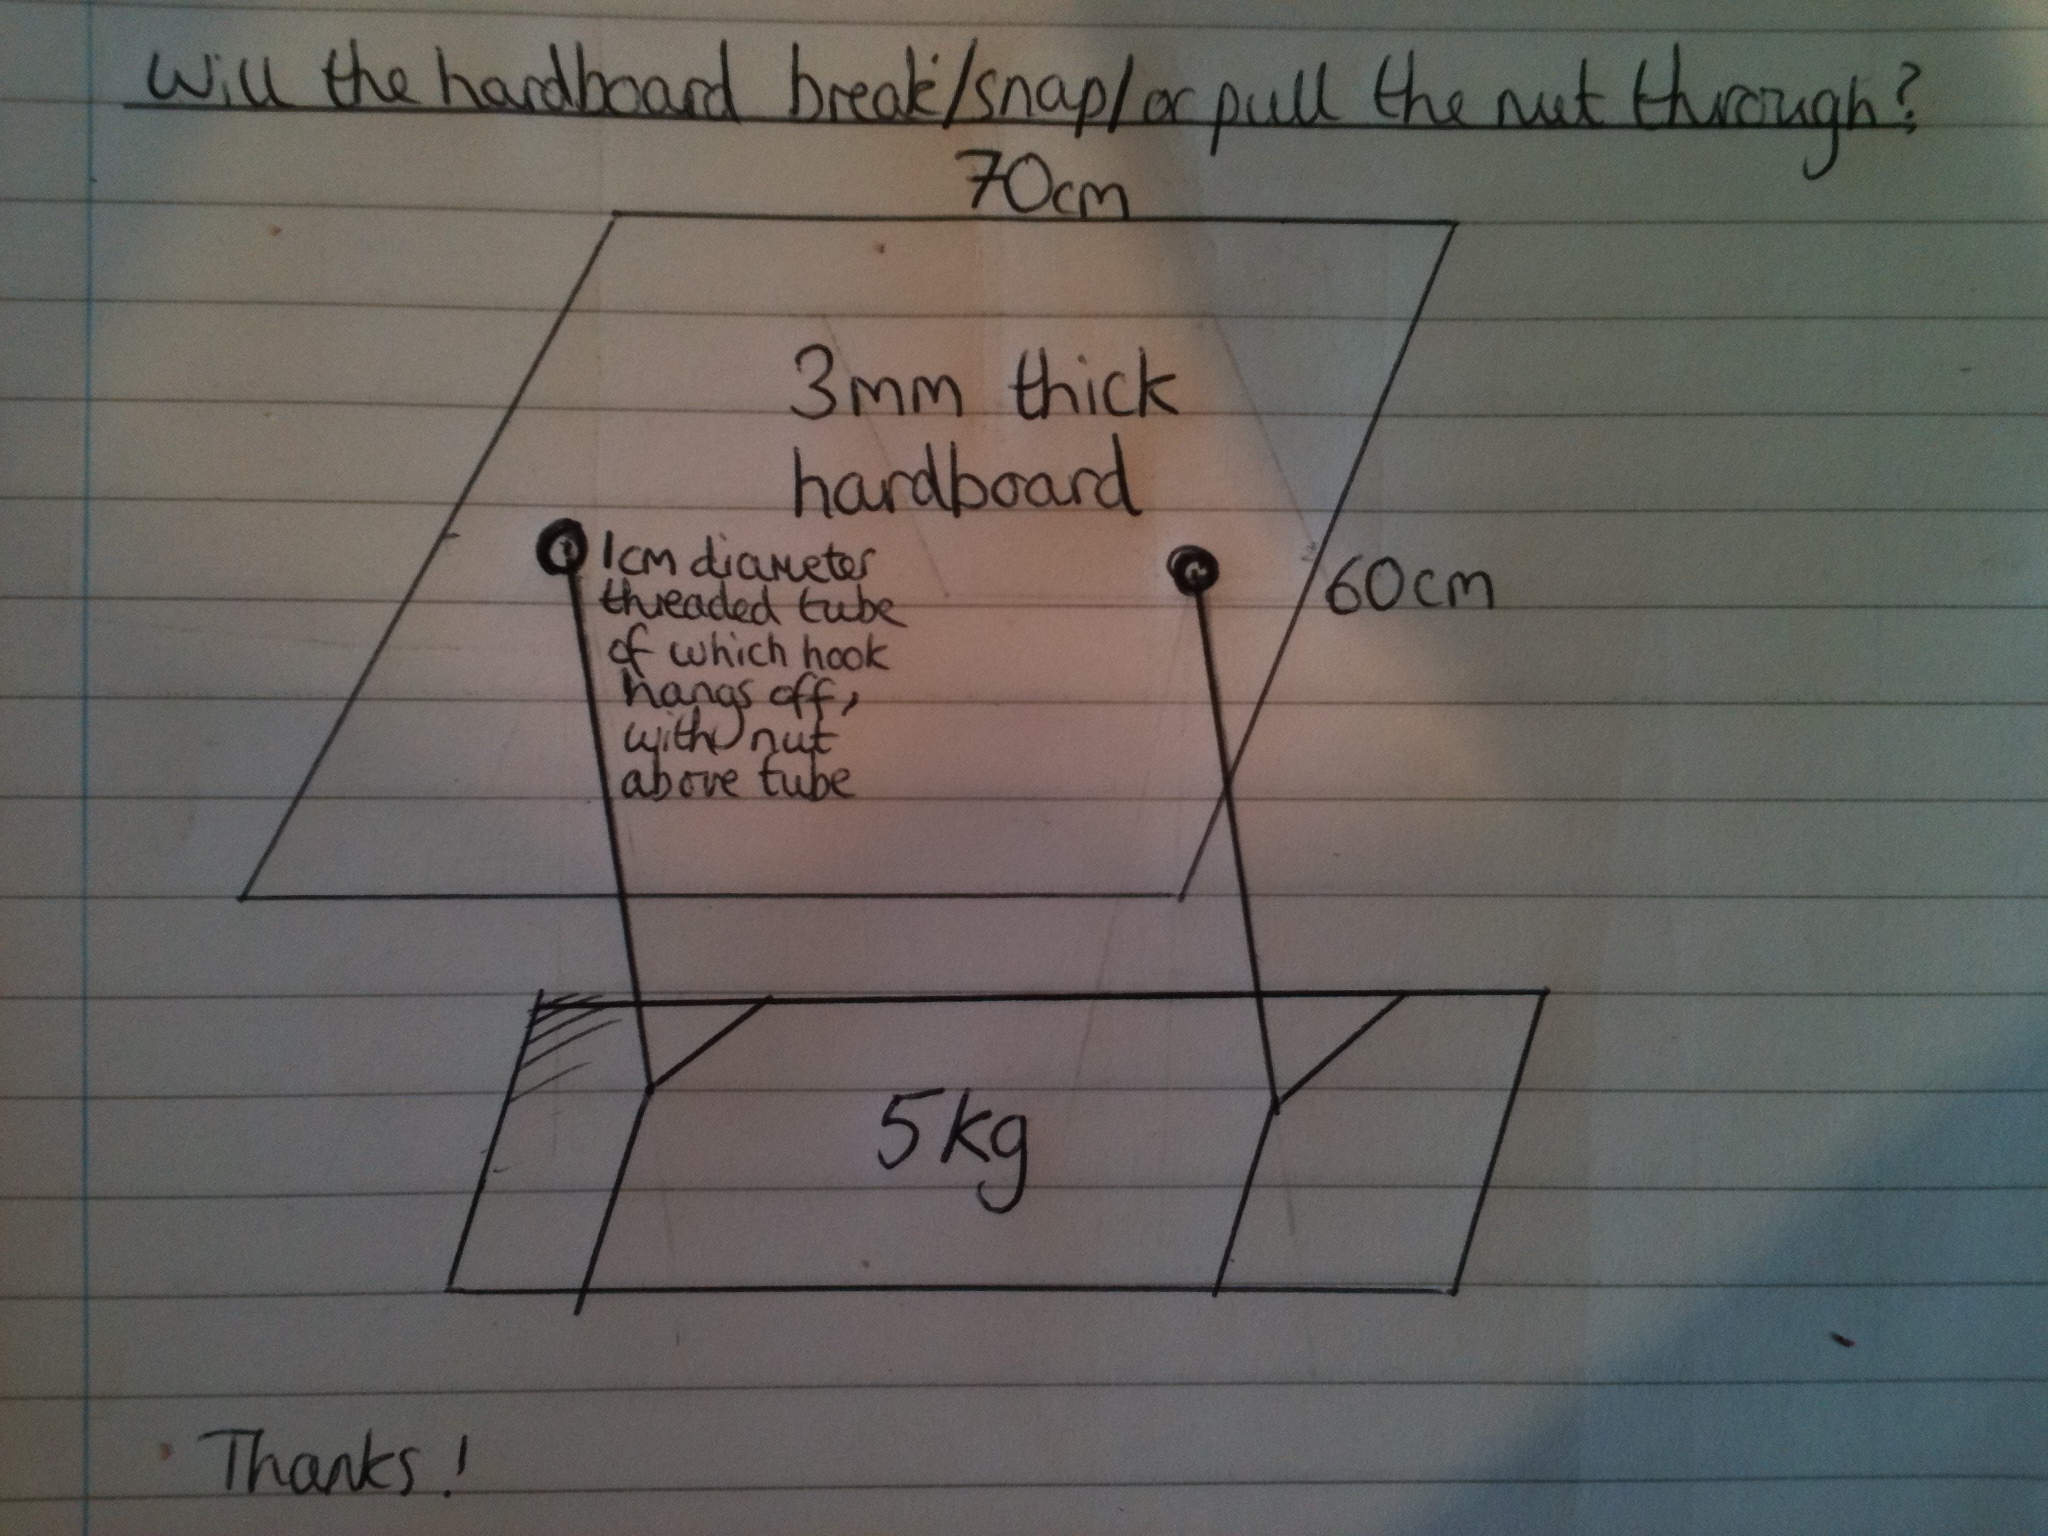 Will the hardboard break/snap/or pull the nut through?
70cm
3mm thick
hardboard
1cm diameter
threaded tube
of which hook
hangs off,
with nut
above tube
60cm
5kg
Thanks!